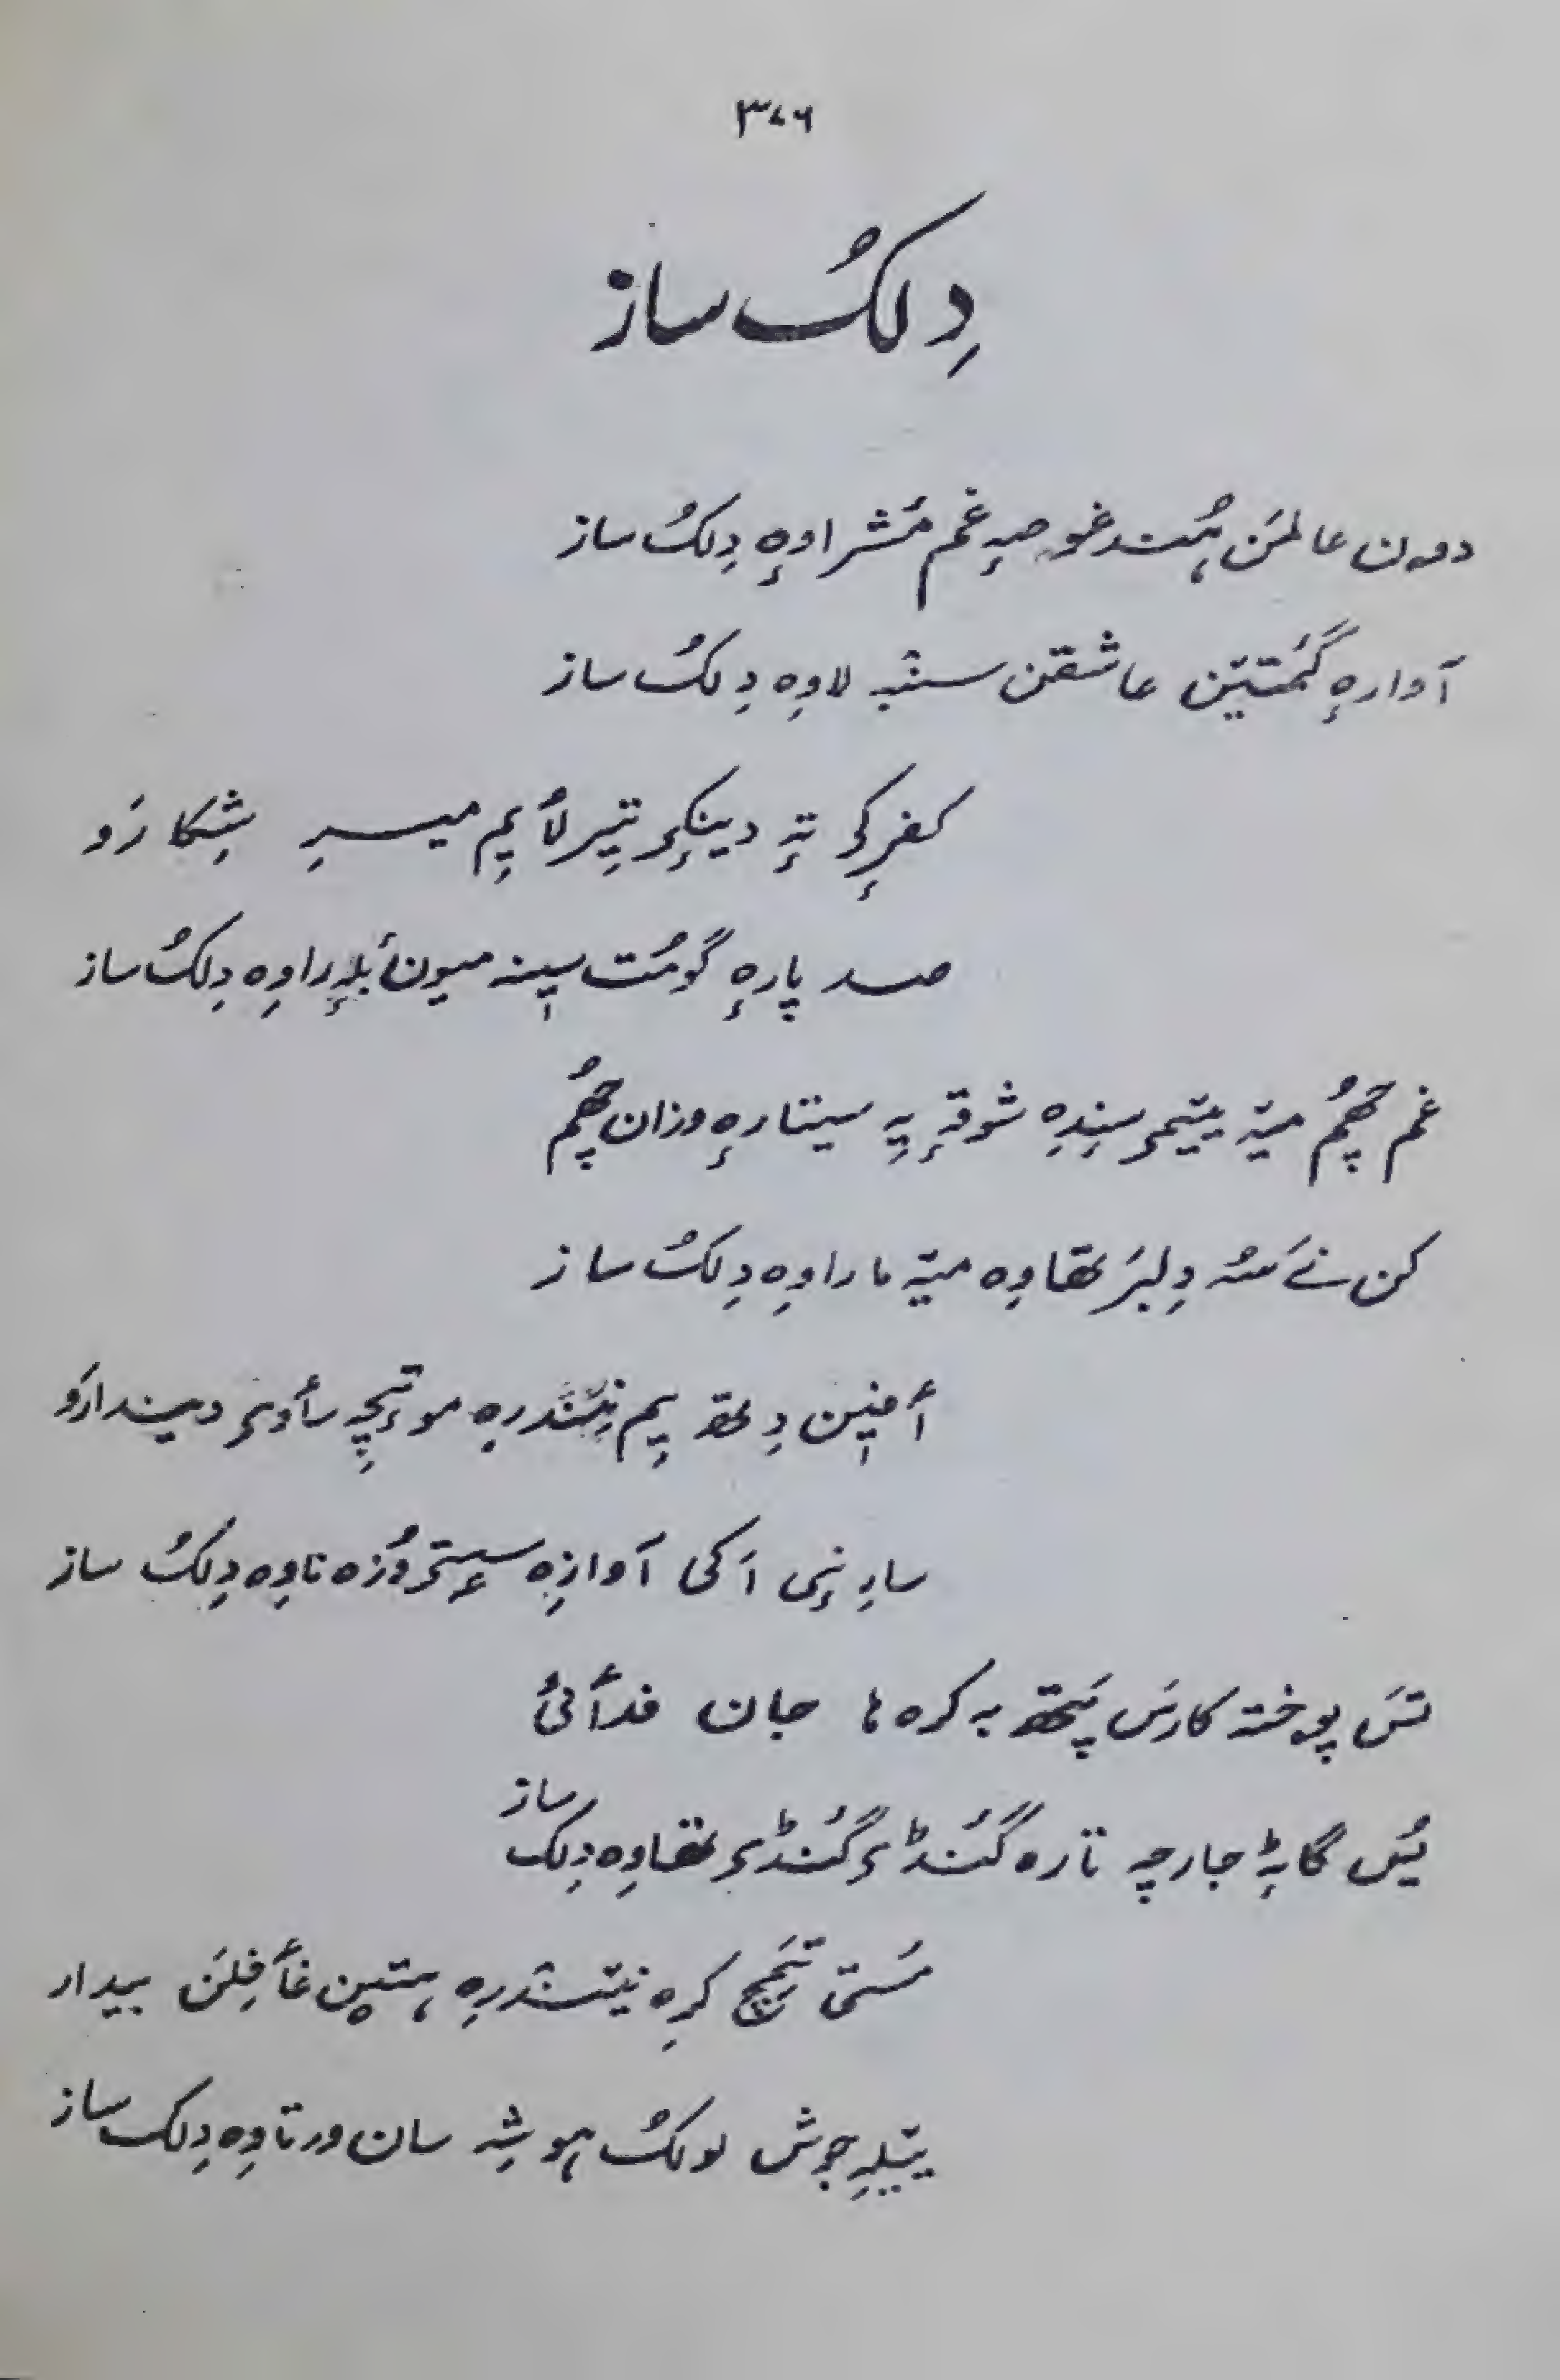 ۳۷۶
دِلکُ ساز
دون عالمَن ہُند غوصہٕ غم مٔشراوِہ دِلکُ ساز
آوارہٕ گمٔتیٚن عاشقن سنٛبہٕ لاوِہ دِلکُ ساز
کفرٕکۍ تہٕ دینکۍ تیٖر لٔایِم میسرِ شِکارَو
صد پارہٕ گومُت سیٖنہٕ میون بٔلہٕ راوِہ دِلکُ ساز
غم چھُم میٚتہ یتیمۍ سِندِہ شوقہٕ یہِ سیتارہٕ وزان چھُم
کن نَے سُہ دِلبَر تھاوِہ میٚتہ ماراوِہ دِلکُ ساز
أمیٖن دِتھ یِم نِنٛدرِہ موتٕچہِ سأوۍ دیندارَو
سارِنٕی اَکی آوازِہ سٟتۍ وُزہ ناوِہ دِلکُ ساز
تَس پوختہٕ کارَس پَتھ بہ کرہ ہا جان فدأئی
یُس گاہٕ جارچہ تارہ گنٛڈۍ گنٛڈۍ تھاوِہ دِلک ساز
مَستی تِمَے کرِہ نیٚنٛدرِہ ہتیٚن غأفِلَن بیدار
یٚتلہِ جوش لولکُ ہوشہِ سان ورتاوِہ دِلک ساز